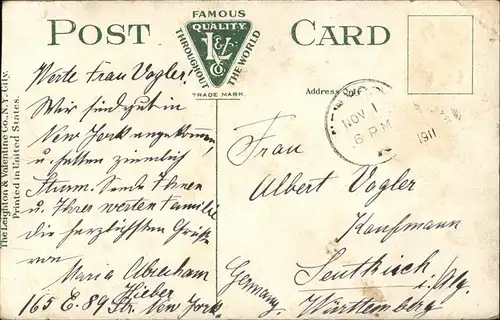 POST CARD
FAMOUS
QUALITY
THROUGHOUT THE WORLD
L&V
CO
TRADE MARK.
Address Only.
NOV 1
6 PM
1911
The Leighton & Valentine Co., N.Y. City.
Printed in United States.
Werte Frau Vogler!
Wir sind gut in
New York angekommen,
u. hatten ziemlich
Sturm. Sende Ihnen
u. Ihrer werten Familie
die herzlichsten Grüße
von
Maria Abraham
Hieber
165 E. 89 Str. New York.
Frau
Albert Vogler
Kaufmann
Leutkirch
i. Allg.
Germany
Württemberg